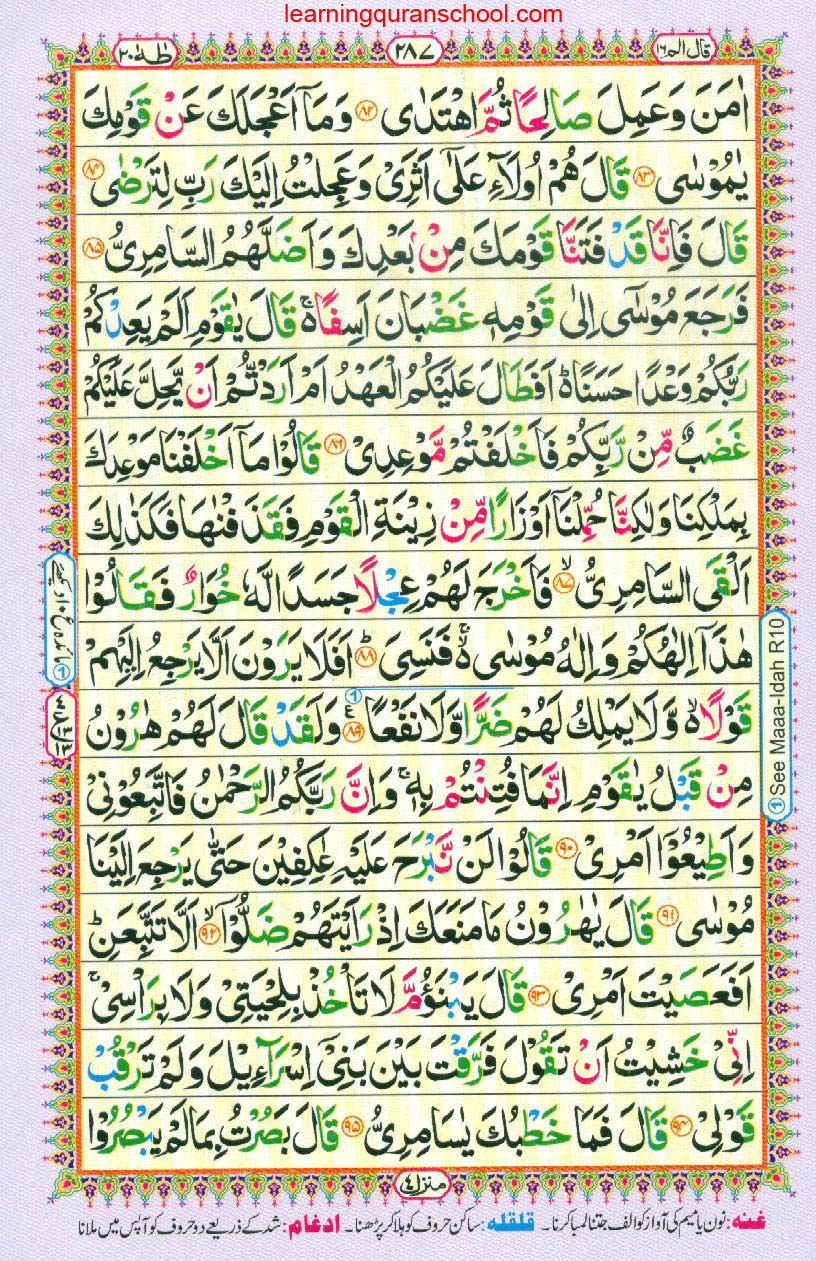 learningquranschool.com
قال الم ١٦
٢٨٧
طٰهٰ ٢٠
اٰمَنَ وَعَمِلَ صَالِحًا ثُمَّ اهْتَدٰى ۝٨٢ وَمَاۤ اَعْجَلَكَ عَنْ قَوْمِكَ
يٰمُوْسٰى ۝٨٣ قَالَ هُمْ اُولَآءِ عَلٰٓى اَثَرِىْ وَعَجِلْتُ اِلَيْكَ رَبِّ لِتَرْضٰى ۝٨٤
قَالَ فَاِنَّا قَدْ فَتَنَّا قَوْمَكَ مِنْۢ بَعْدِكَ وَاَضَلَّهُمُ السَّامِرِىُّ ۝٨٥
فَرَجَعَ مُوْسٰۤى اِلٰى قَوْمِهٖ غَضْبَانَ اَسِفًا ۚ قَالَ يٰقَوْمِ اَلَمْ يَعِدْكُمْ
رَبُّكُمْ وَعْدًا حَسَنًا ؕ اَفَطَالَ عَلَيْكُمُ الْعَهْدُ اَمْ اَرَدْتُّمْ اَنْ يَّحِلَّ عَلَيْكُمْ
غَضَبٌ مِّنْ رَّبِّكُمْ فَاَخْلَفْتُمْ مَّوْعِدِىْ ۝٨٦ قَالُوْا مَاۤ اَخْلَفْنَا مَوْعِدَكَ
بِمَلْكِنَا وَلٰكِنَّا حُمِّلْنَاۤ اَوْزَارًا مِّنْ زِيْنَةِ الْقَوْمِ فَقَذَفْنٰهَا فَكَذٰلِكَ
اَلْقَى السَّامِرِىُّ ۙ۝٨٧ فَاَخْرَجَ لَهُمْ عِجْلًا جَسَدًا لَّهٗ خُوَارٌ فَقَالُوْا
هٰذَاۤ اِلٰهُكُمْ وَاِلٰهُ مُوْسٰى ۬ فَنَسِىَ ؕ۝٨٨ اَفَلَا يَرَوْنَ اَلَّا يَرْجِعُ اِلَيْهِمْ
قَوْلًا ۙ وَّلَا يَمْلِكُ لَهُمْ ضَرًّا وَّلَا نَفْعًا ۝٨٩ وَلَقَدْ قَالَ لَهُمْ هٰرُوْنُ
مِنْ قَبْلُ يٰقَوْمِ اِنَّمَا فُتِنْتُمْ بِهٖ ۚ وَاِنَّ رَبَّكُمُ الرَّحْمٰنُ فَاتَّبِعُوْنِىْ
وَاَطِيْعُوْۤا اَمْرِىْ ۝٩٠ قَالُوْا لَنْ نَّبْرَحَ عَلَيْهِ عٰكِفِيْنَ حَتّٰى يَرْجِعَ اِلَيْنَا
مُوْسٰى ۝٩١ قَالَ يٰهٰرُوْنُ مَا مَنَعَكَ اِذْ رَاَيْتَهُمْ ضَلُّوْۤا ۙ۝٩٢ اَلَّا تَتَّبِعَنِ ؕ
اَفَعَصَيْتَ اَمْرِىْ ۝٩٣ قَالَ يَبْنَؤُمَّ لَا تَاْخُذْ بِلِحْيَتِىْ وَلَا بِرَاْسِىْ ۚ
اِنِّىْ خَشِيْتُ اَنْ تَقُوْلَ فَرَّقْتَ بَيْنَ بَنِىْۤ اِسْرَآءِيْلَ وَلَمْ تَرْقُبْ
قَوْلِىْ ۝٩٤ قَالَ فَمَا خَطْبُكَ يٰسَامِرِىُّ ۝٩٥ قَالَ بَصُرْتُ بِمَا لَمْ يَبْصُرُوْا
① See Maaa-Idah R10
منزل ٤
غنه: نون یا میم کی آواز کو الف جتنا لمبا کرنا۔ قلقله: ساکن حروف کو ہلا کر پڑھنا۔ ادغام: شد کے ذریعے دو حروف کو آپس میں ملانا